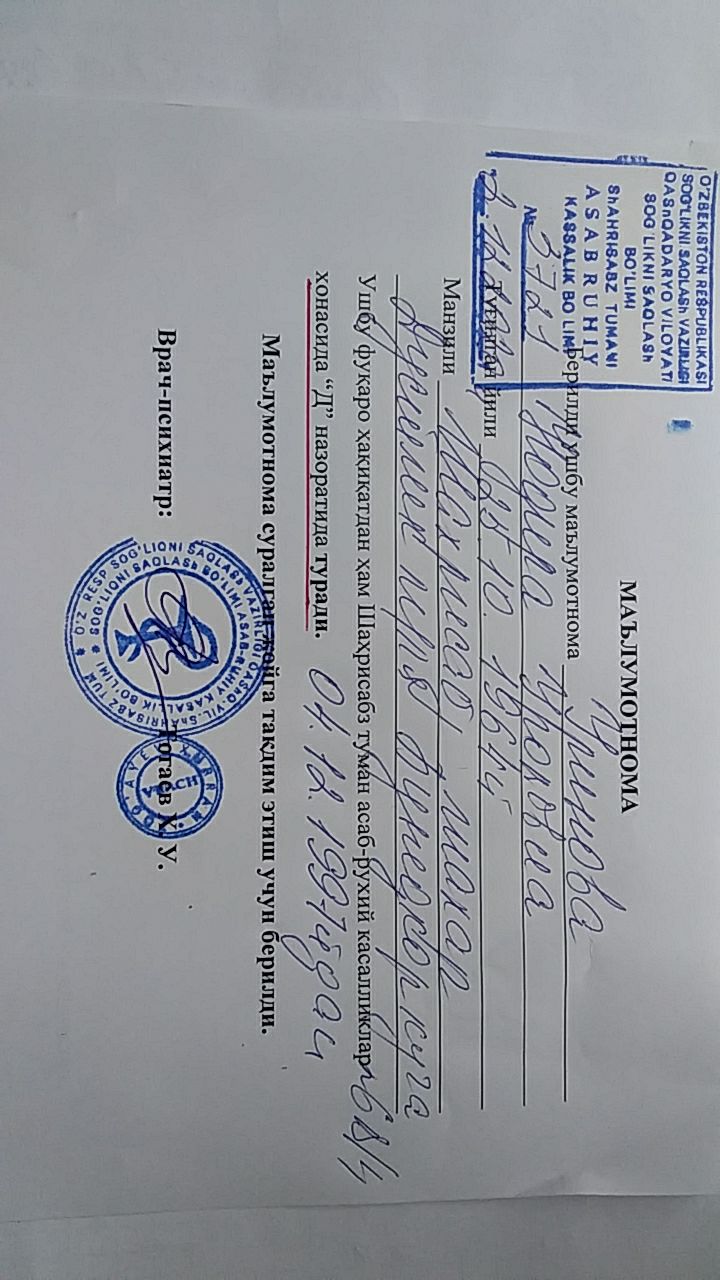 O'ZBEKISTON RESPUBLIKASI
SOG'LIKNI SAQLASh VAZIRLIGI
QAShQADARYO VILOYATI
SOG'LIKNI SAQLASh
BO'LIMI
ShAHRISABZ TUMANI
ASABRUHIY
KASSALIK BO'LIMI
№ 3721
МАЪЛУМОТНОМА
Берилди ушбу маълумотнома Уринова
Уроловна
Туғилган йили 25.10.1964й
Манзили Шахрисабз шахар
кўча
Ушбу фукаро ҳақиқатдан ҳам Шахрисабз туман асаб-рухий касалликлар
хонасида “Д” назоратида туради. 01.12.1997йдан
Маълумотнома суралган жойга такдим этиш учун берилди.
Врач-психиатр: Тотаев Х. У.
O'Z RESP SOG'LIQNI SAQLASh VAZIRLIGI QAShQ. VIL. ShAHRISABZ TUM
SOG'LIQNI SAQLASh BO'LIMI ASAB-RUHIY KASALLIK BO'LIMI
VRACH